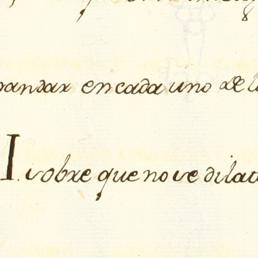 encada uno de
I. sobre que no se dilat